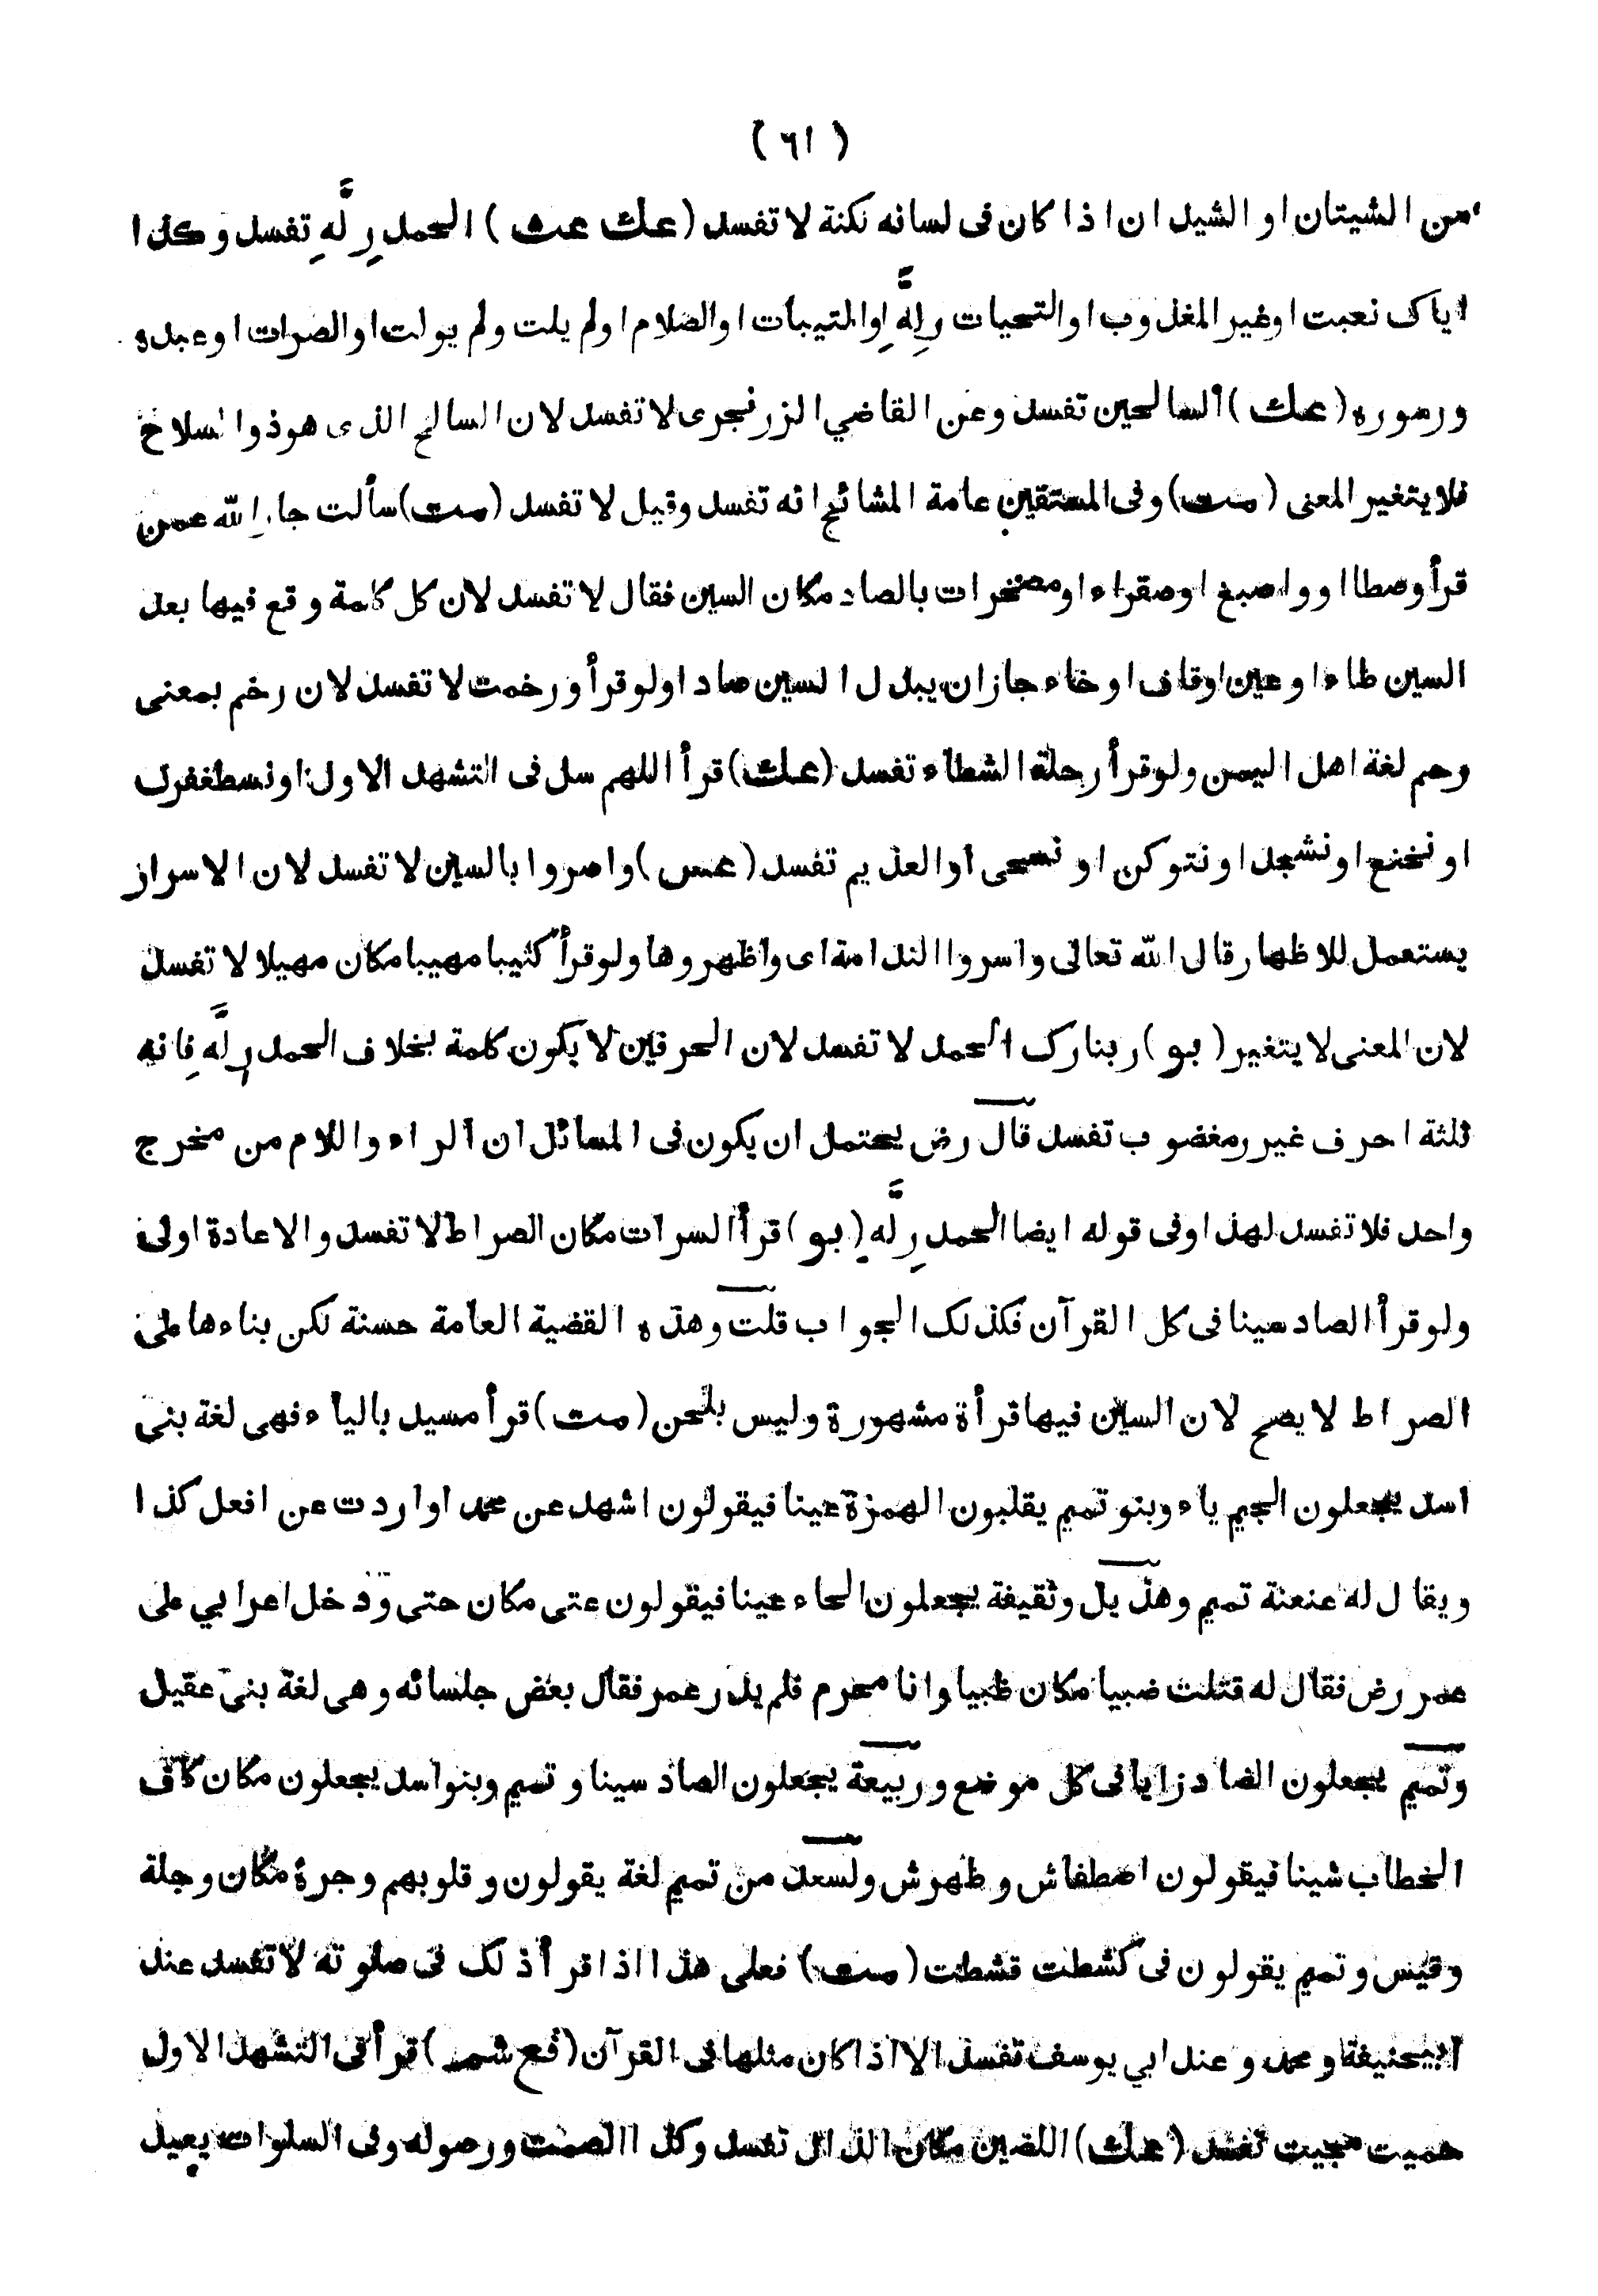 ( ٦١ )
من الشيتان او الشيدان اذا كان فى لسانه نكنة لا تفسد (عك عث) الحمد رِلَّهِ تفسد وكذا
اياك نعبت او غير المغذوب او التحيات رِلَّهِ او التيبات او الضلام او لم يلت ولم يولت او الصرات او عبده
ورصوره (عك) السالحين تفسد وعن القاضي الزرنجرى لا تفسد لان السالح الذى هو ذو السلاح
فلا يتغير المعنى (مت) وفى المستقين عامة المشائخ انه تفسد وقيل لا تفسد (مت) سألت جار الله عمن
قرأ وصطا او واصبغ او صقراء او مصخرات بالصاد مكان السين فقال لا تفسد لان كل كلمة وقع فيها بعد
السين طاء او غين او قاف او خاء جاز ان يبدل السين صادا ولو قرأ ورخمت لا تفسد لان رخم بمعنى
رحم لغة اهل اليمن ولو قرأ رحلة الشطاء تفسد (عك) قرأ اللهم سل فى التشهد الاول او نسطغفرك
او نخنع او نشجد او نتوكن او نسحى او العذيم تفسد (عس) واصروا بالسين لا تفسد لان الاسرار
يستعمل للاظهار قال الله تعالى واسروا الندامة اى واظهروها ولو قرأ كثيبا مهيبا مكان مهيلا لا تفسد
لان المعنى لا يتغير (بو) ربنارك الحمد لا تفسد لان الحرفين لا يكون كلمة بخلاف الحمد رِلَّهِ فانه
ثلثة احرف غير رمغضوب تفسد قال رض يحتمل ان يكون فى المسائل ان الراء واللام من مخرج
واحد فلا تفسد لهذا وفى قوله ايضا الحمد رِلَّهِ (بو) قرأ السرات مكان الصراط لا تفسد والاعادة اولى
ولو قرأ الصاد سينا فى كل القرآن فكذلك الجواب قلت وهذه القضية العامة حسنة لكن بناءها على
الصراط لا يصح لان السين فيها قرأة مشهورة وليس بلحن (مت) قرأ مسيد بالياء فهى لغة بنى
اسد يجعلون الجيم ياء وبنو تميم يقلبون الهمزة عينا فيقولون اشهد عن محمد او اردت عن افعل كذا
ويقال له عنعنة تميم وهذيل وثقيفة يجعلون الحاء عينا فيقولون عتى مكان حتى ودخل اعرابي على
عمر رض فقال له قتلت ضبيا مكان ظبيا وانا محرم فلم يدر عمر فقال بعض جلسائه وهى لغة بنى عقيل
وتميم يجعلون الصاد زايا فى كل موضع وربيعة يجعلون الصاد سينا وتميم وبنو اسد يجعلون مكان كاف
الخطاب شينا فيقولون اصطفاش وظهرش ولسعد من تميم لغة يقولون وقلوبهم وجرة مكان وجلة
وقيس وتميم يقولون فى كشطت قشطت (مت) فعلى هذا اذا قرأ ذلك فى صلوته لا تفسد عند
ابيحنيفة ومحمد وعند ابي يوسف تفسد الا اذا كان مثلها فى القرآن (فع شمر) قرأ فى التشهد الاول
حميت مجيت تفسد (عك) اللضين مكان الذال تفسد وكذا الصمت ورصوله وفى السلوات يعيد